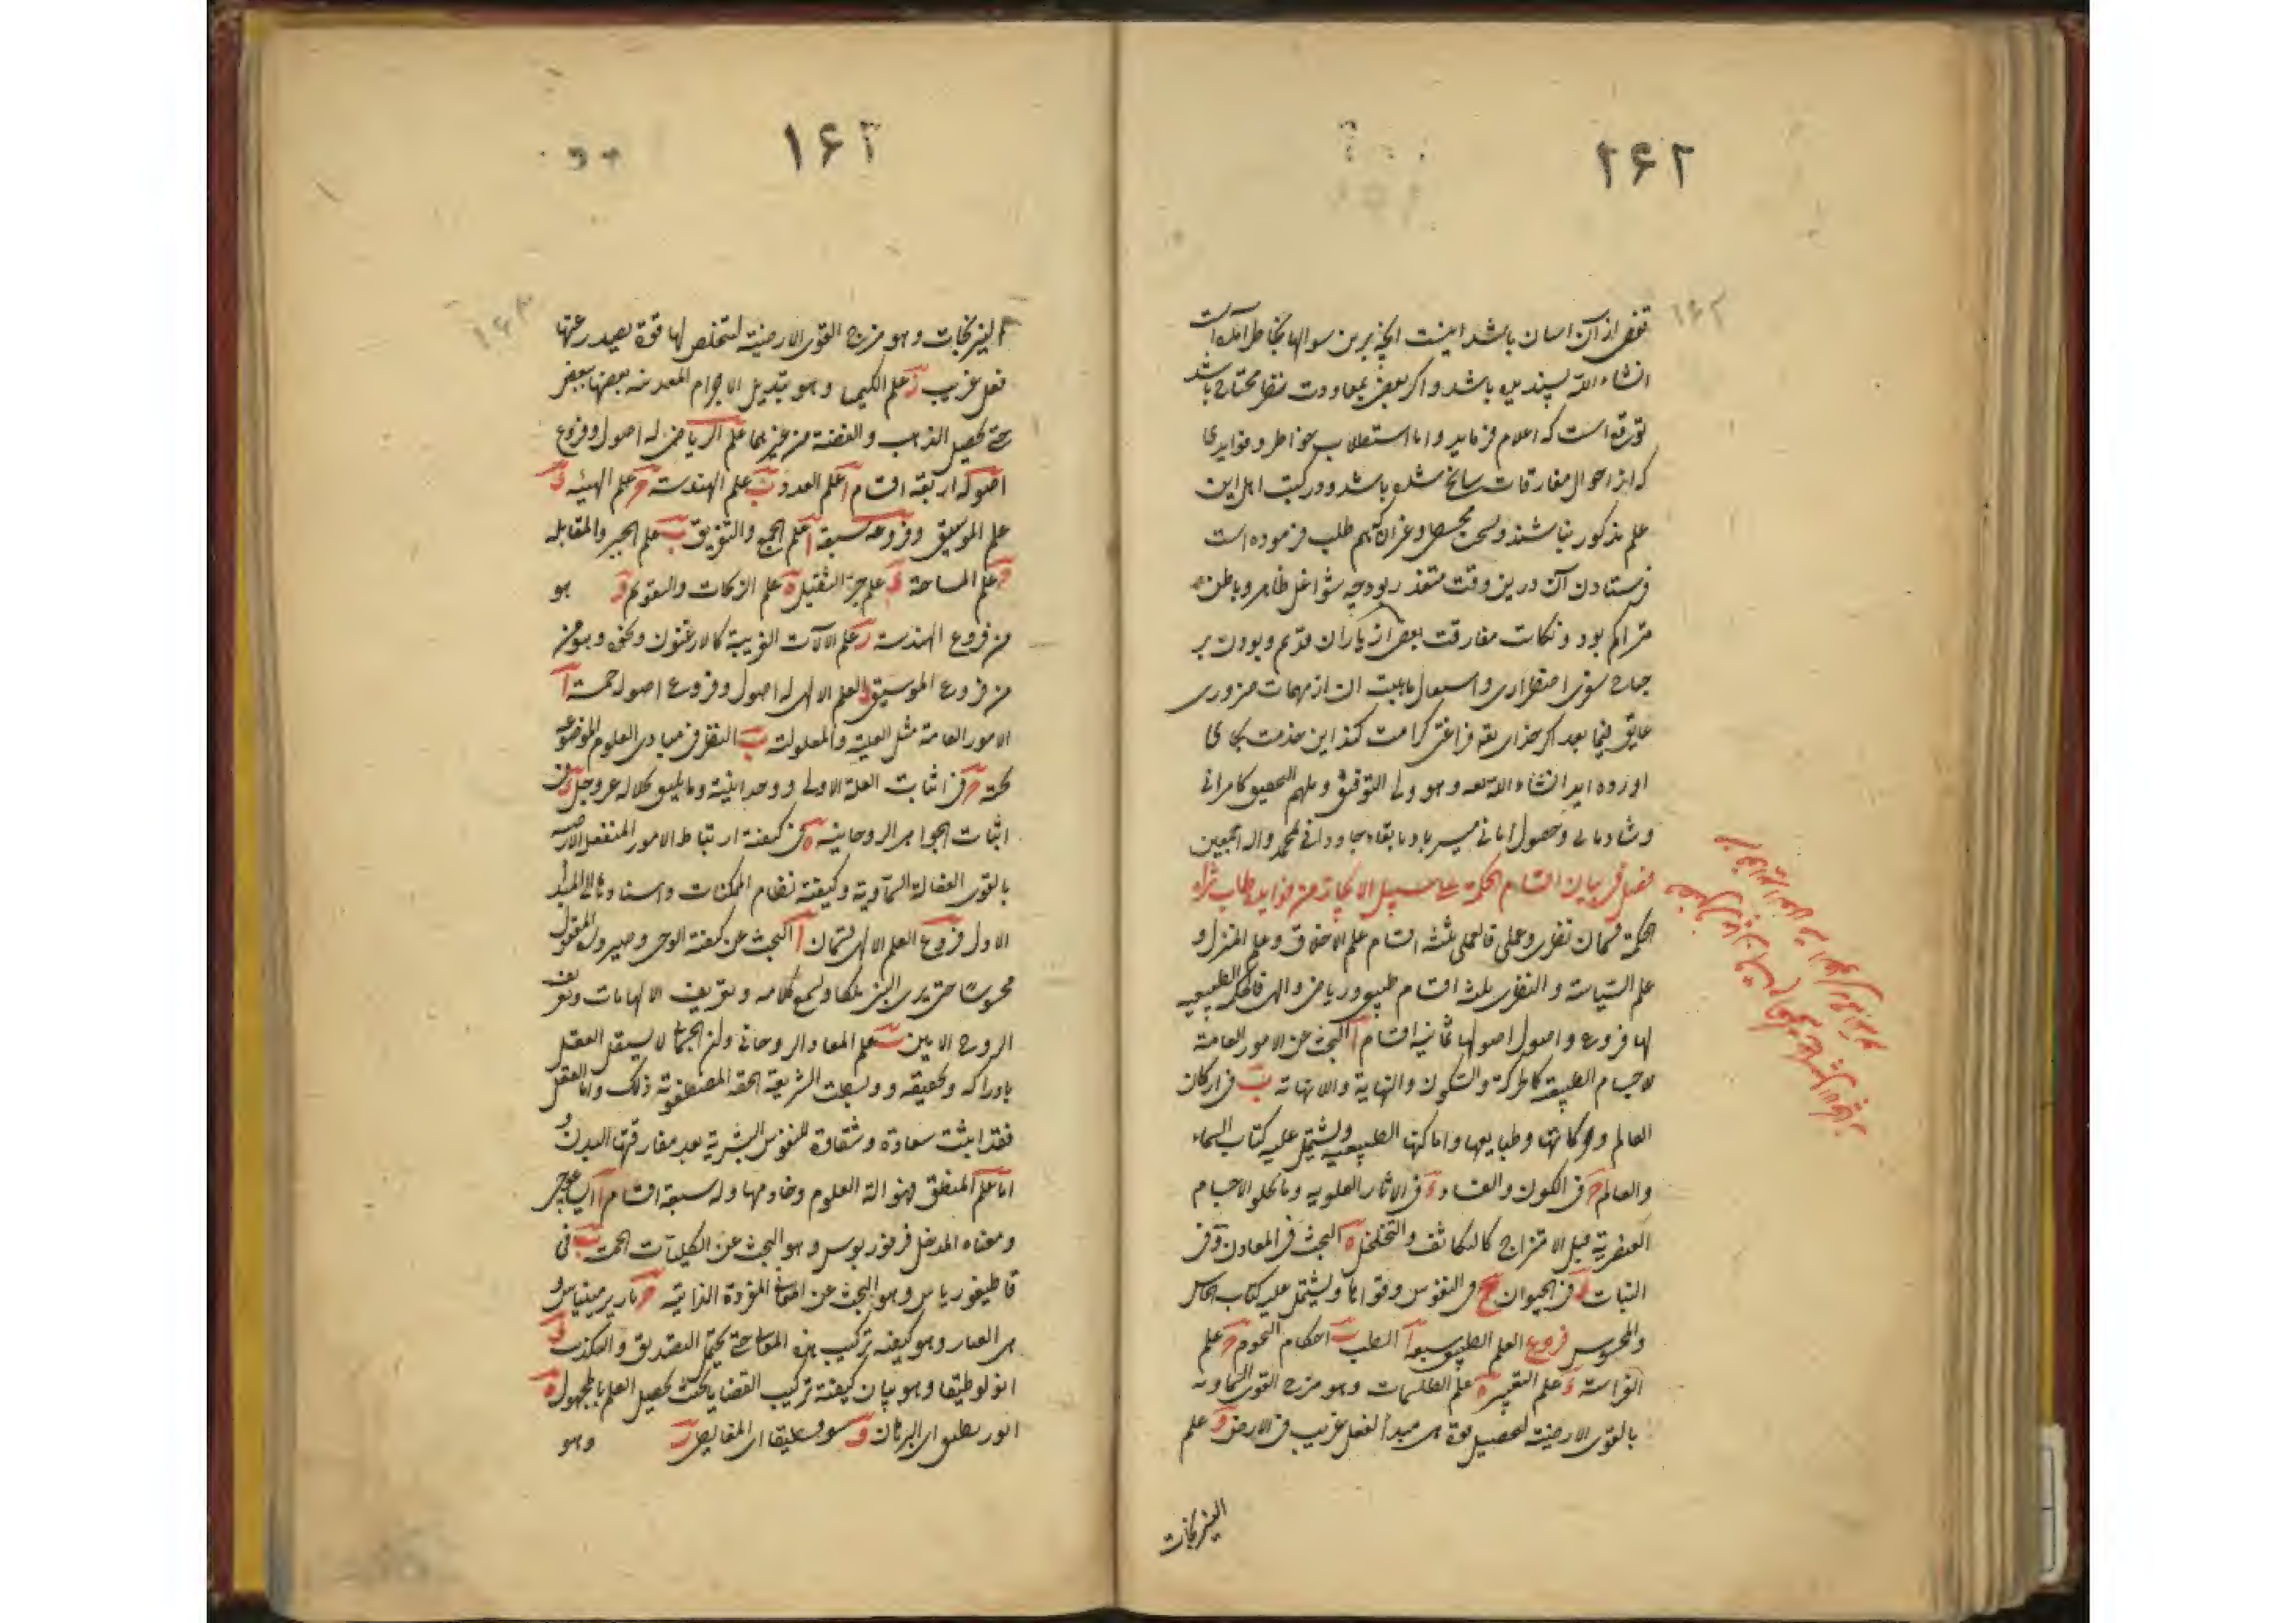 ۲۶۲
۱۶۲
تفصی از آن اسان باشد اینست انچه برین سوالها بخاطر آمده است
انشاء الله پسندیده باشد و اکر بعضی بمعاودت نظر محتاج باشد
توقع است که اعلام فرماید و اما استطلاب خواطر و فوایدی
که از احوال مفارقات سانح شده باشد و در کتب اهل این
علم مذکور نباشند و طلب فرموده است
فرستادن آن درین وقت متعذر بود چه شواغل ظاهر و باطن
متراکم بود و نکات مفارقت بعضی از یاران قدیم و بودن بر
جناح سفری اضطراری و اسـتعمال ان از مهمات ضروری
عایق فیما بعد اکر خدای تعه فراغتی کرامت کند این خدمت بجای
اورده اید انشاء الله تعه و هو ولی التوفیق و ملهم التحقیق کامرانی
و شادمانی و حصول امانی میسر باد با بقاء جاودانی بمحمد واله اجمعین
فصل فی بیان اقسام الحکمة علی سبیل الایجاز من فوایده طاب ثراه
الحکمة قسمان نظری و عملی فالعملی ثلثه اقسام علم الاخلاق و علم المنزل و
علم السیاسة و النظری ثلثه اقسام طبیعی و ریاضی و الهی فالعلم الطبیعیه
لها فروع و اصول اصولها ثمانیة اقسام آ البحث عن الامور العامة
لاجسام الطبیعة کالحرکة والسکون والنهایة واللانهایة ب فی ارکان
العالم و حرکاتها و طبایعها و اماکنها الطبیعیه و یشتمل علیه کتاب السماء
والعالم ج فی الکون والفساد د فی الاثار العلویه و ما یحلو الاجسام
العنصریة قبل الامتزاج کالتکاثف والتخلخل ه البحث فی المعادن و فی
النبات ز فی الحیوان ح فی النفوس و قواها و یشتمل علیه کتاب الحاس
والمحسوس فروع العلم الطبیعی سبعة آ الطب ب احکام النجوم ج علم
الفراسة د علم التعبیر ه علم الطلسمات وهو مزج القوی السماویه
بالقوی الارضیة لتحصیل قوة هی مبدأ لفعل غریب فی الارض و علم
النیرنجات
۱۶۳
۱۶۳
النیرنجات وهو مزج القوی الارضیة لتخلص لها قوة یصدر عنها
فعل غریب ز علم الکیمیا وهو تبدیل الاجرام المعدنیه بعضها ببعض
حتی تحصیل الذهب والفضة من غیرهما علم الریاضی له اصول و فروع
اصوله اربعة اقسام آ علم العدد ب علم الهندسة ج علم الهیئه د
علم الموسیقی و فروعه سبعة آ علم الجمع والتفریق ب علم الجبر والمقابله
ج علم المساحة د علم جر الثقیل ه علم الزیجات والتقویم و هو
من فروع الهندسة ز علم الالات الغریبة کالارغنون و نحوه وهو من
من فروع الموسیقی العلم الالهی له اصول و فروع اصوله خمسة آ
الامور العامة مثل العلیة والمعلولیة ب النظر فی مبادی العلوم الموضوعه
تحته ج فی اثبات العلة الاولی و وحدانیته و ما یلیق بجلاله عز وجل د فی
اثبات الجواهر الروحانیه ه فی کیفیة ارتباط الامور المنفعلة الارضیه
بالقوی الفعالة السماویة و کیفیة نظام الممکنات و اسنادها الی المبدأ
الاول فروع العلم الالهی قسمان آ البحث عن کیفیة الوحی و صیرورة المعقول
محسوسًا حتی یری النبی ملکا و یسمع کلامه و تعریف الالهامات و تعریف
الروح الامین ب علم المعاد الروحانی و ان الجسمانی لا یستقل العقل
بادراکه و تحقیقه و بسطت الشریعة الحقه المصطفویة ذلک و اما العقل
فقد اثبت سعادة و شقاوة للنفوس البشریة بعد مفارقتها البدن و
اما علم المنطق فهو الة العلوم و خادمها و له سبعة اقسام آ ایساغوجی
و معناه المدخل فرفوریوس و هو البحث عن الکلیات الخمس ب فی
قاطیغوریاس و هو البحث عن المعانی المفردة الذاتیه ج باریرمینیاس و
هی العباره و هو کیفیة ترکیب هذه المعانی حتی یحتمل التصدیق والتکذیب د
انولوطیقا و هو بیان کیفیة ترکیب القضایا بحیث تحصیل العلم بالمجهول ه
ای البرهان و سوفسطیقا ای المغالطه ز وهو